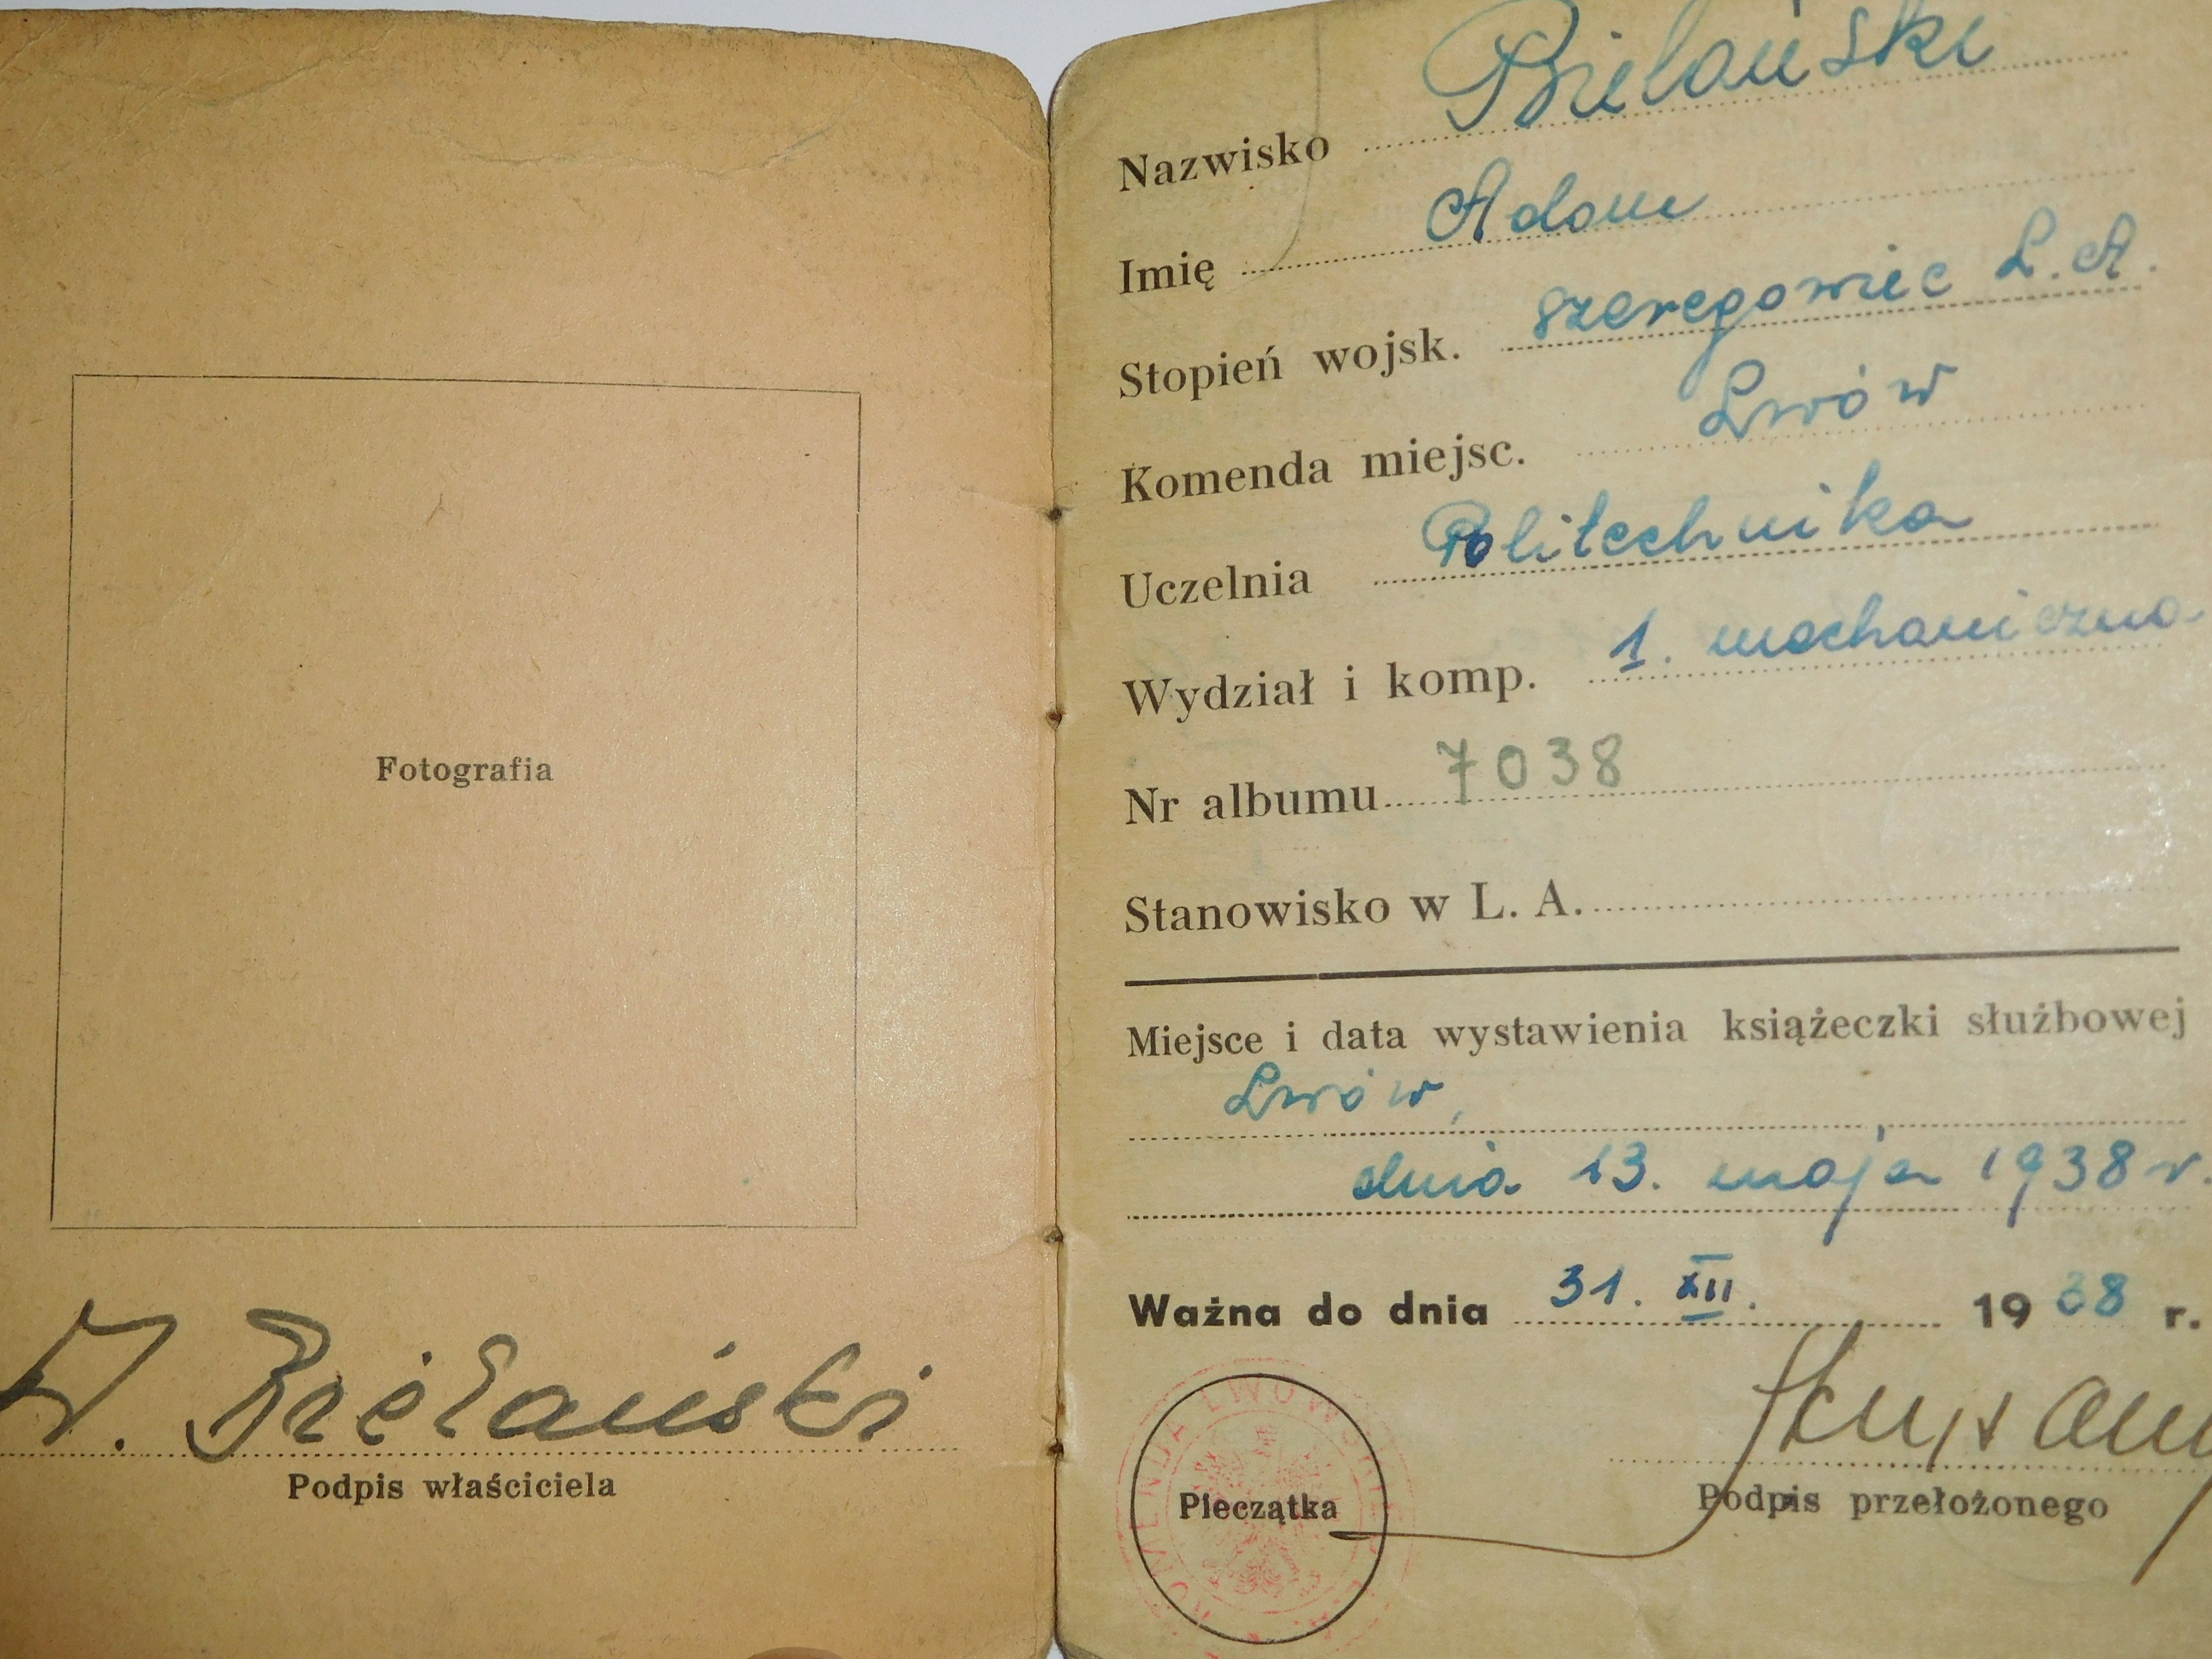 Fotografia
A. Bielański
Podpis właściciela
Nazwisko Bielański
Imię Adam
Stopień wojsk. szeregowiec L.A.
Komenda miejsc. Lwów
Uczelnia Politechnika
Wydział i komp. 1. mechaniczna
Nr albumu 7038
Stanowisko w L. A.
Miejsce i data wystawienia książeczki służbowej
Lwów,
dnia 13. maja 1938 r.
Ważna do dnia 31. XII. 1938 r.
KOMENDA LWOWSK
Pieczątka
Podpis przełożonego